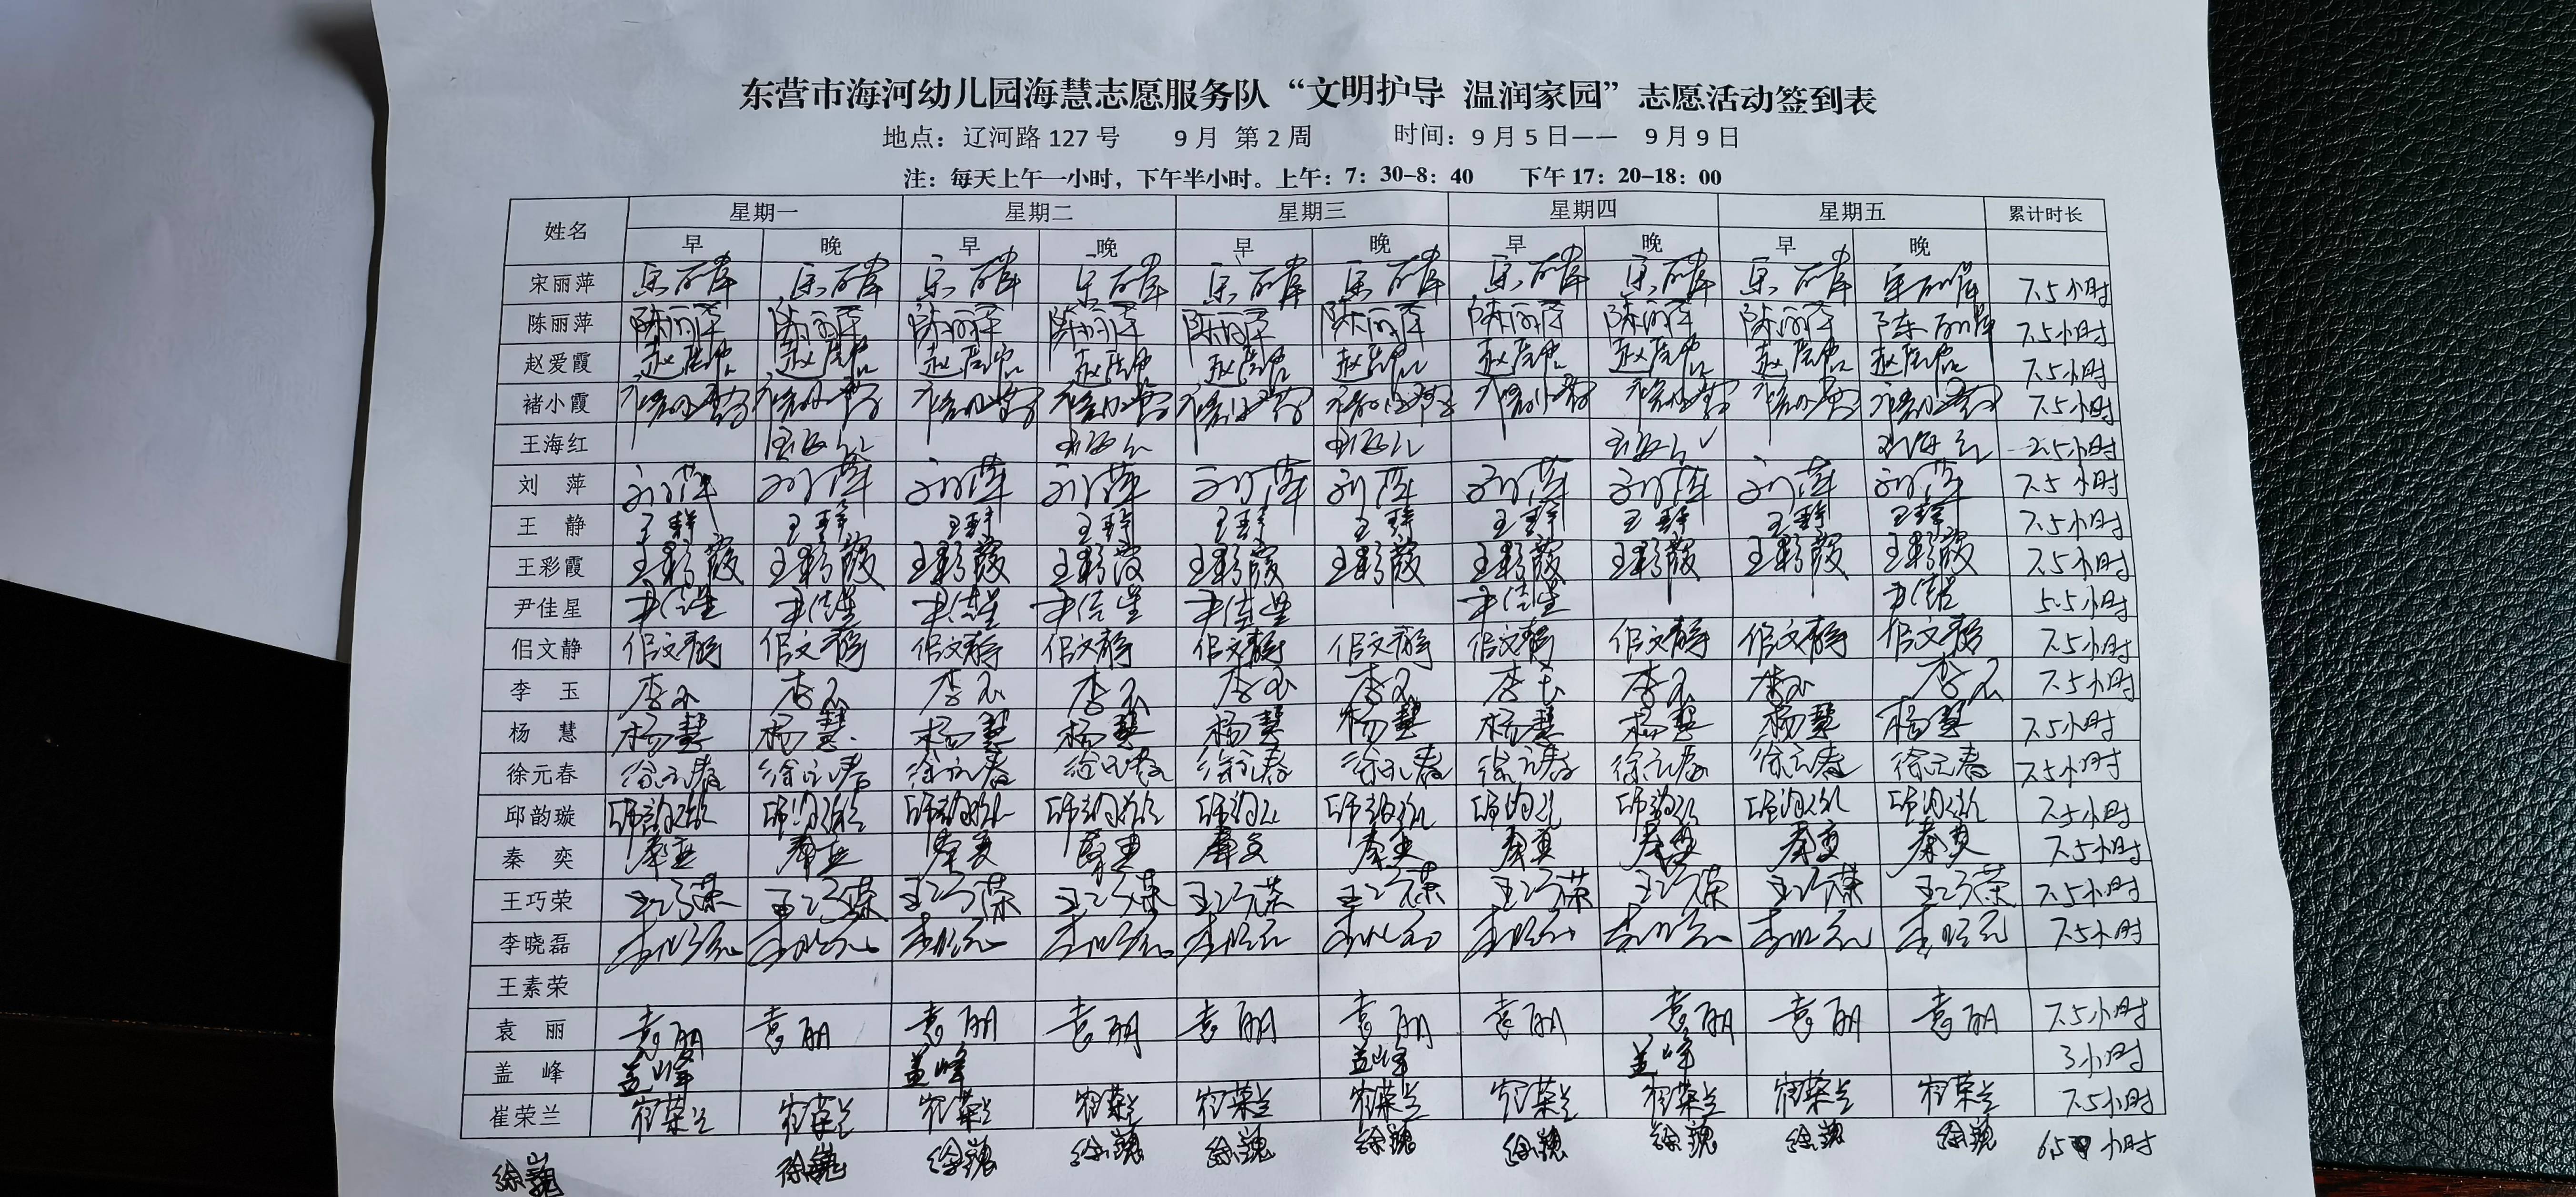 东营市海河幼儿园海慧志愿服务队“文明护导 温润家园”志愿活动签到表
地点：辽河路 127 号 9 月 第 2 周 时间：9 月 5 日—— 9 月 9 日
注：每天上午一小时，下午半小时。上午：7：30-8：40 下午 17：20-18：00
姓名 星期一 星期二 星期三 星期四 星期五 累计时长
早 晚 早 晚 早 晚 早 晚 早 晚
宋丽萍 宋丽萍 宋丽萍 宋丽萍 宋丽萍 宋丽萍 宋丽萍 宋丽萍 宋丽萍 宋丽萍 宋丽萍 7.5小时
陈丽萍 陈丽萍 陈丽萍 陈丽萍 陈丽萍 陈丽萍 陈丽萍 陈丽萍 陈丽萍 陈丽萍 陈丽萍 7.5小时
赵爱霞 赵爱霞 赵爱霞 赵爱霞 赵爱霞 赵爱霞 赵爱霞 赵爱霞 赵爱霞 赵爱霞 赵爱霞 7.5小时
褚小霞 褚小霞 褚小霞 褚小霞 褚小霞 褚小霞 褚小霞 褚小霞 褚小霞 褚小霞 褚小霞 7.5小时
王海红 王海红 王海红 王海红 王海红 王海红 2.5小时
刘 萍 刘萍 刘萍 刘萍 刘萍 刘萍 刘萍 刘萍 刘萍 刘萍 刘萍 7.5小时
王 静 王静 王静 王静 王静 王静 王静 王静 王静 王静 王静 7.5小时
王彩霞 王彩霞 王彩霞 王彩霞 王彩霞 王彩霞 王彩霞 王彩霞 王彩霞 王彩霞 王彩霞 7.5小时
尹佳星 尹佳星 尹佳星 尹佳星 尹佳星 尹佳星 尹佳星 尹佳星 5.5小时
佀文静 佀文静 佀文静 佀文静 佀文静 佀文静 佀文静 佀文静 佀文静 佀文静 佀文静 7.5小时
李 玉 李玉 李玉 李玉 李玉 李玉 李玉 李玉 李玉 李玉 李玉 7.5小时
杨 慧 杨慧 杨慧 杨慧 杨慧 杨慧 杨慧 杨慧 杨慧 杨慧 杨慧 7.5小时
徐元春 徐元春 徐元春 徐元春 徐元春 徐元春 徐元春 徐元春 徐元春 徐元春 徐元春 7.5小时
邱韵璇 邱韵璇 邱韵璇 邱韵璇 邱韵璇 邱韵璇 邱韵璇 邱韵璇 邱韵璇 邱韵璇 邱韵璇 7.5小时
秦 奕 秦奕 秦奕 秦奕 秦奕 秦奕 秦奕 秦奕 秦奕 秦奕 秦奕 7.5小时
王巧荣 王巧荣 王巧荣 王巧荣 王巧荣 王巧荣 王巧荣 王巧荣 王巧荣 王巧荣 王巧荣 7.5小时
李晓磊 李晓磊 李晓磊 李晓磊 李晓磊 李晓磊 李晓磊 李晓磊 李晓磊 李晓磊 李晓磊 7.5小时
王素荣
袁 丽 袁丽 袁丽 袁丽 袁丽 袁丽 袁丽 袁丽 袁丽 袁丽 袁丽 7.5小时
盖 峰 盖峰 盖峰 盖峰 盖峰 3小时
崔荣兰 崔荣兰 崔荣兰 崔荣兰 崔荣兰 崔荣兰 崔荣兰 崔荣兰 崔荣兰 崔荣兰 崔荣兰 7.5小时
徐巍 徐巍 徐巍 徐巍 徐巍 徐巍 徐巍 徐巍 徐巍 徐巍 6.5小时